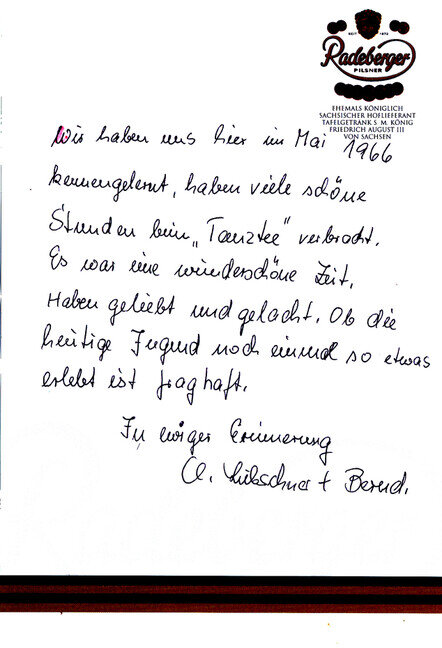 SEIT 1872
Radeberger
PILSNER
EHEMALS KÖNIGLICH
SÄCHSISCHER HOFLIEFERANT
TAFELGETRÄNK S. M. KÖNIG
FRIEDRICH AUGUST III
VON SACHSEN
Wir haben uns hier im Mai 1966
kennengelernt, haben viele schöne
Stunden beim „Tanztee" verbracht.
Es war eine wunderschöne Zeit.
Haben geliebt und gelacht. Ob die
heutige Jugend noch einmal so etwas
erlebt ist fraghaft.
In ewiger Erinnerung
+ Bernd.